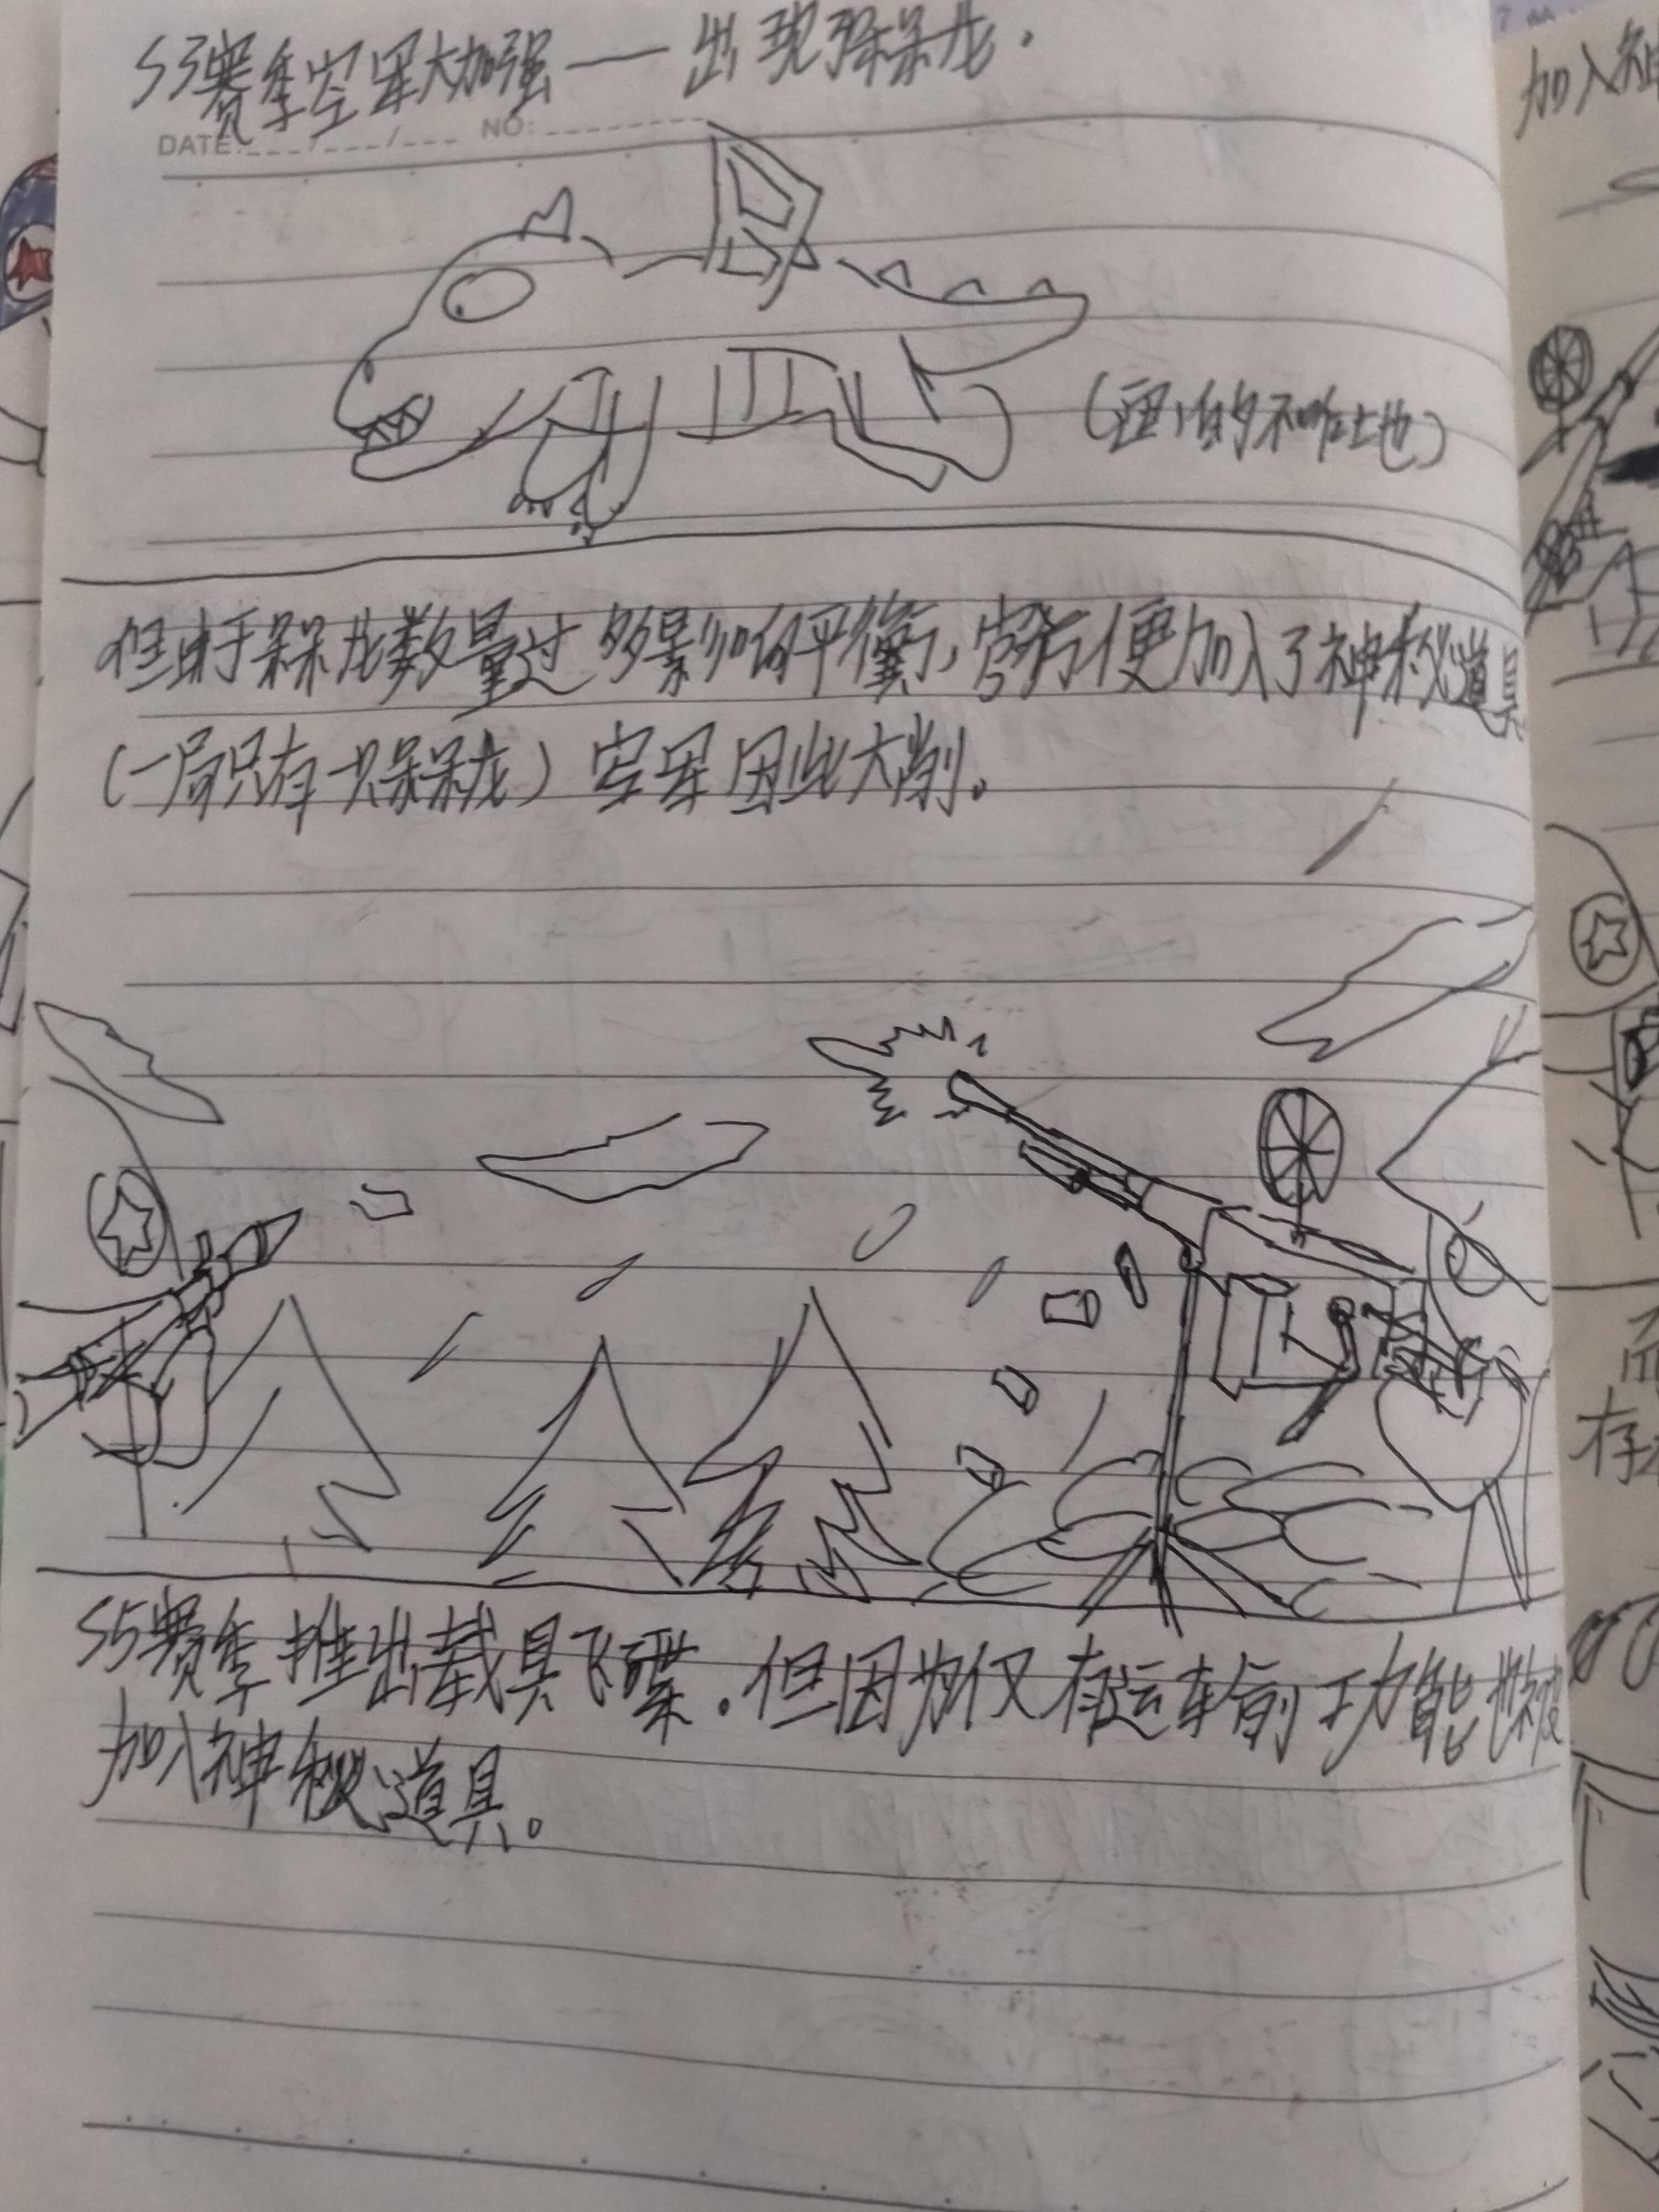 S3赛季空军大加强——出现呆呆龙.
DATE: / / NO:
(画的不咋地)
但由于呆呆龙数量过多影响平衡,官方便加入了神秘道具
(一局只有一只呆呆龙)空军因此大削。
S5赛季推出载具飞碟.但因为仅有运车前功能也被
加入神秘道具。
加入神
存